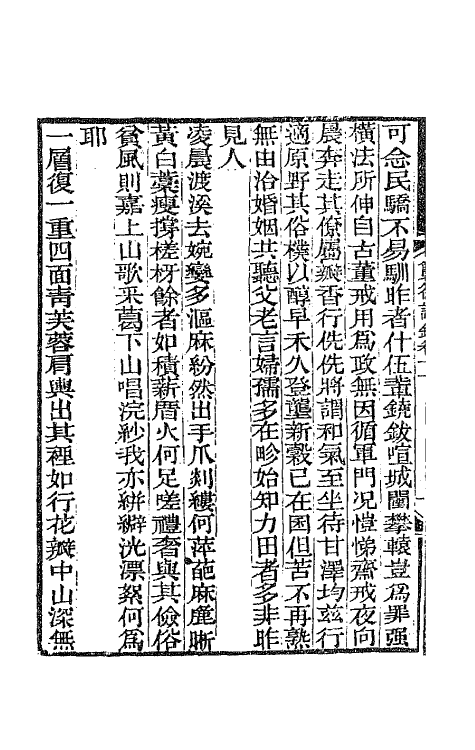 可念民驕不易馴昨者什伍聚鐃鈸喧城闉攀轅豈爲罪强
橫法所伸自古董戒用爲政無因循軍門况愷悌齋戒夜向
晨奔走其僚屬瓣香行侁侁將謂和氣至坐待甘澤均茲行
適原野其俗樸以醇早禾久登壟新穀已在囷但苦不再熟
無由洽婚姻共聽父老言婦孺多在畛始知力田者多非昨
見人
凌晨渡溪去婉孌多漚麻紛然出手爪剡縷何萍葩麻麤晰
黃白藁瘦撐槎枒餘者如積薪厝火何足嗟禮奢與其儉俗
貧風則嘉上山歌采葛下山唱浣紗我亦絣澼洸漂泉何爲
耶
一層復一重四面靑芙蓉肩輿出其裡如行花瓣中山深無